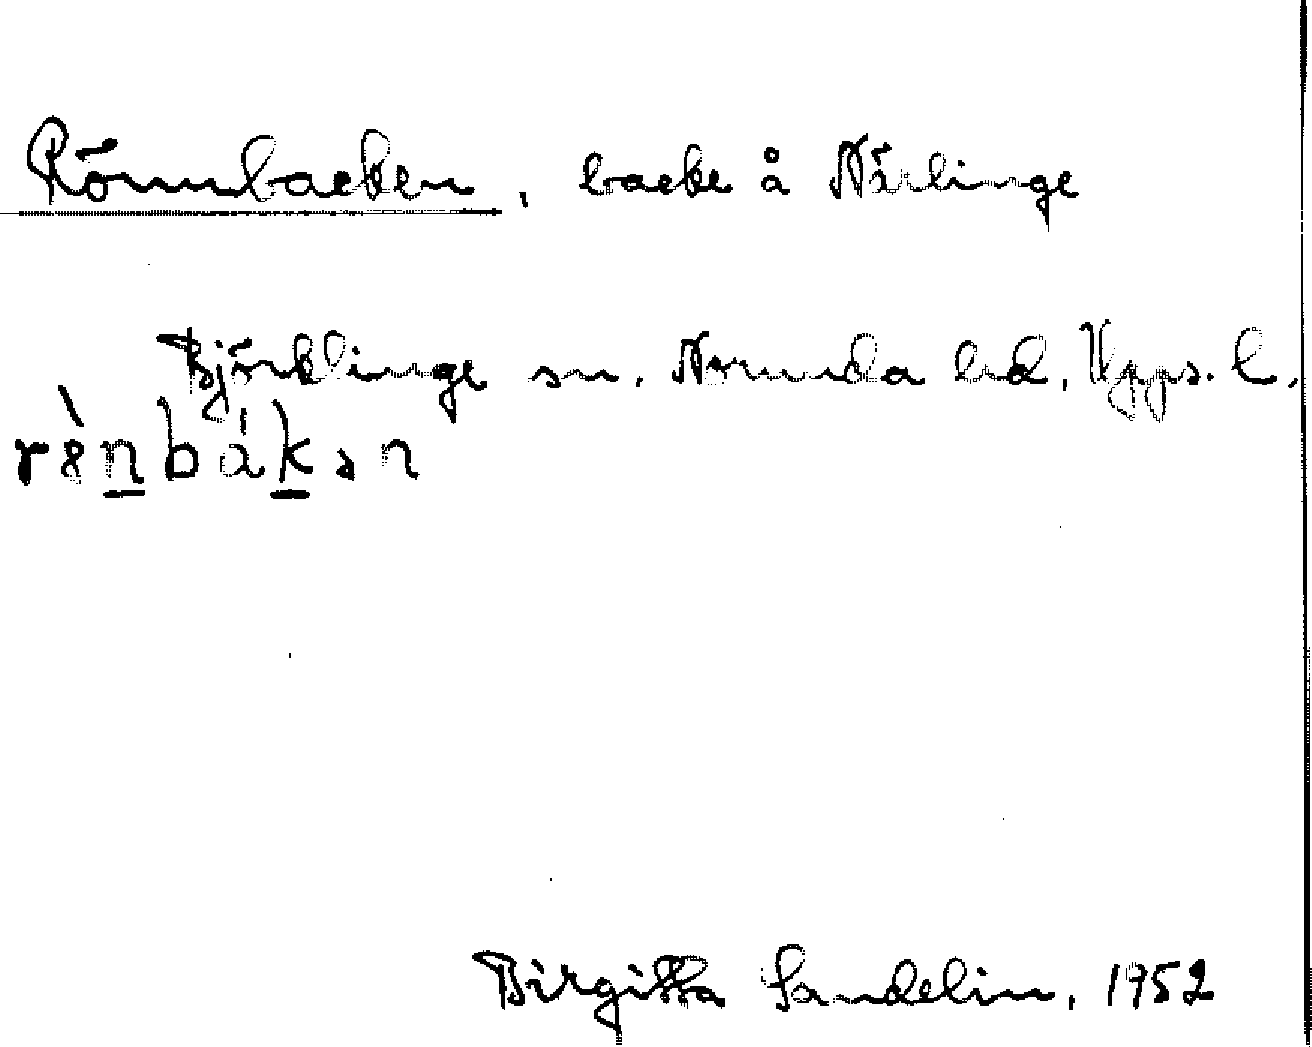 Rönnbacken, backe å Närlinge
Björklinge sn. Norunda hd, Upps. l.
Birgitta Sandelin, 1952